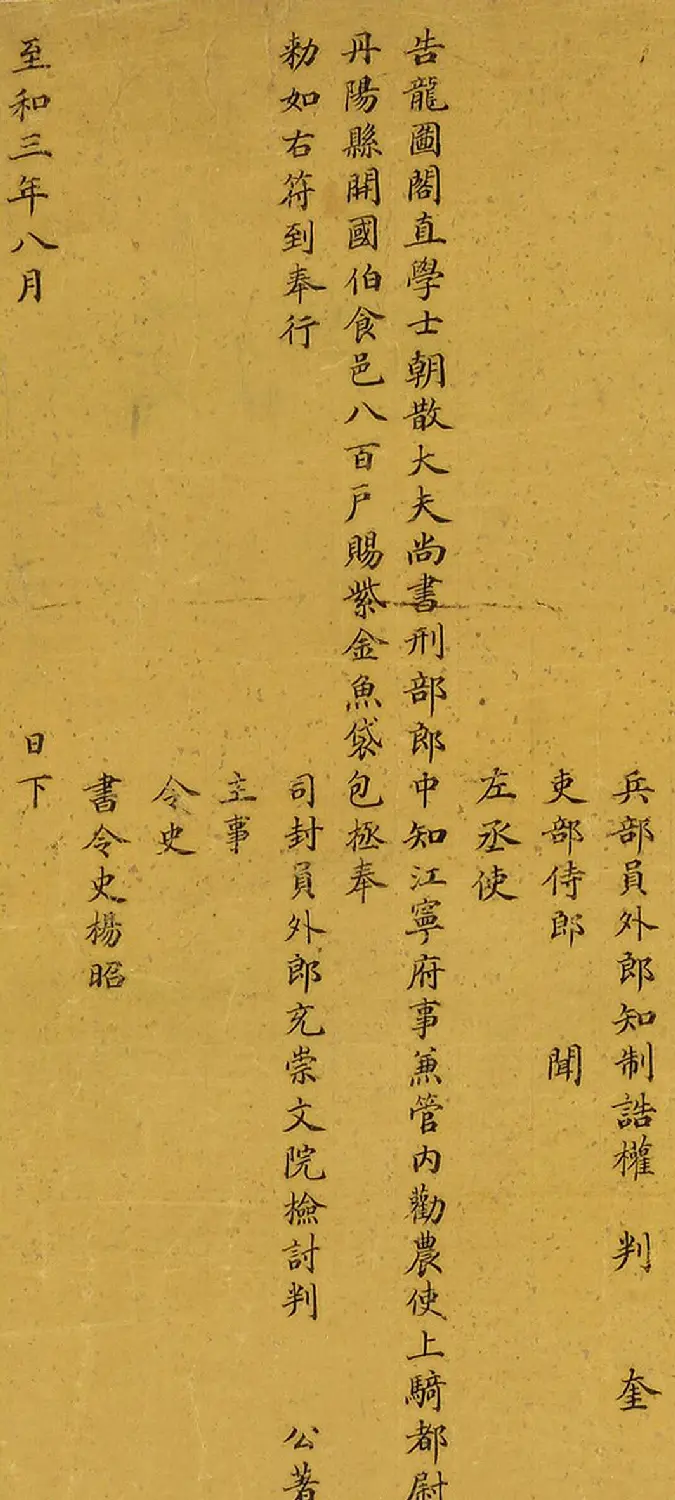 兵部員外郎知制誥權 判 奎
吏部侍郎 聞
左丞使
告龍圖閣直學士朝散大夫尚書刑部郎中知江寧府事兼管内勸農使上騎都尉
丹陽縣開國伯食邑八百戶賜紫金魚袋包拯奉
勅如右符到奉行
司封員外郎充崇文院檢討判 公著
主事
令史
書令史楊昭
至和三年八月 日下